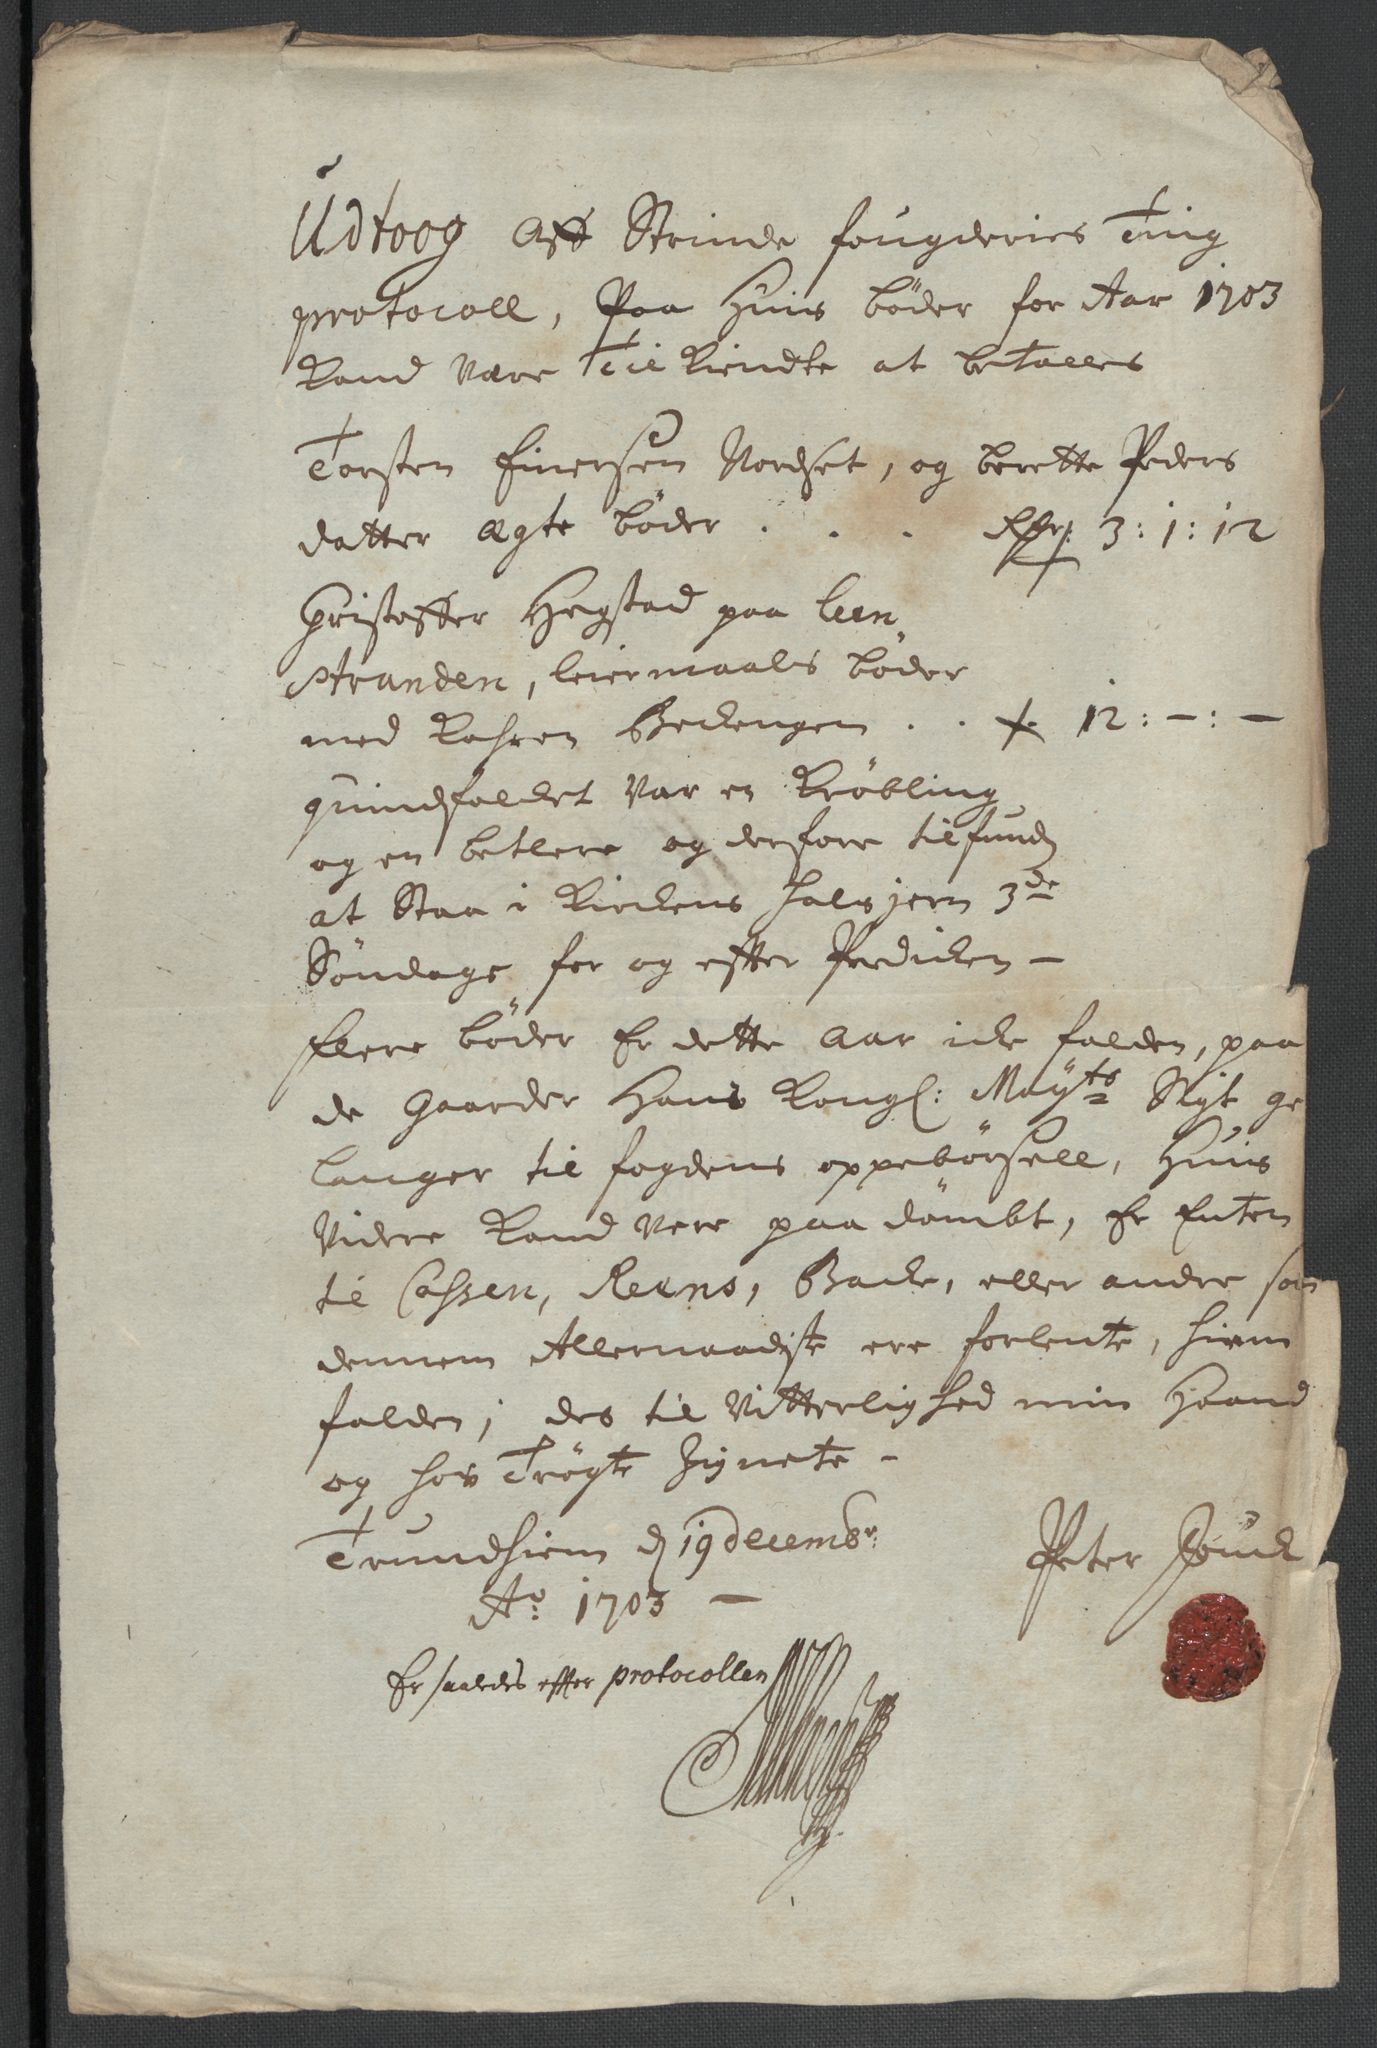 Udtoog Aff Strinde fougderies Ting
protocoll, Paa Huis bøder for Aar 1703
Kand være Til Kiendte at betalles
Torsten Einersen Nordset, og berette Peders
datter ægte bøder . . . Rdr: 3: 1: 12
Christoffer Hegstad paa Leen
stranden, leiermaals bøder
med Kahren . . 12: -: -
quindfolcket var en Krøbling
og en betlere og derfore tilfunden
at Staa i Kirckens halsjern 3de
Søndage for og effter Predicken -
flere bøder Er dette Aar icke falden, paa
de gaarder Hans Kongl: Mayts Sigt ge
langer til fogdens oppebørsell, Huis
Videre Kand vere paa dømbt, Er Enten
til Cassen, Reens, Backe, eller andre som
dennem Allernaadigste ere forlente, hiem
falden; des til Vitterlighed min Haand
og hos Trøgte Zignete -
Trundhiem d 19 decembr:
Ao: 1703 -
Peter Jouck
Er saaledes effter protocollen